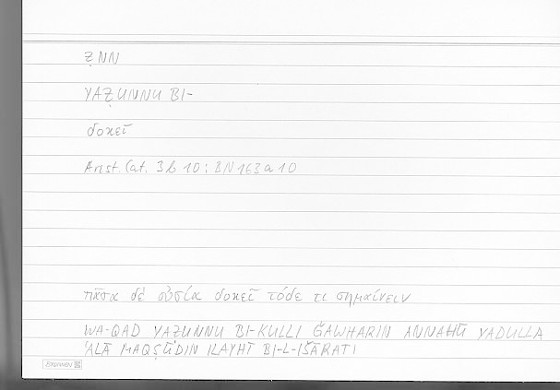 ẒNN
YAẒUNNU BI-
δοκεῖ
Arist. Cat. 3b10; BN 163a10
πᾶσα δὲ οὐσία δοκεῖ τόδε τι σημαίνειν
WA-QAD YAẒUNNU BI-KULLI ǦAWHARIN ANNAHŪ YADULLA
ʿALĀ MAQṢŪDIN ILAYHI BI-L-IŠĀRATI
BRUNNEN